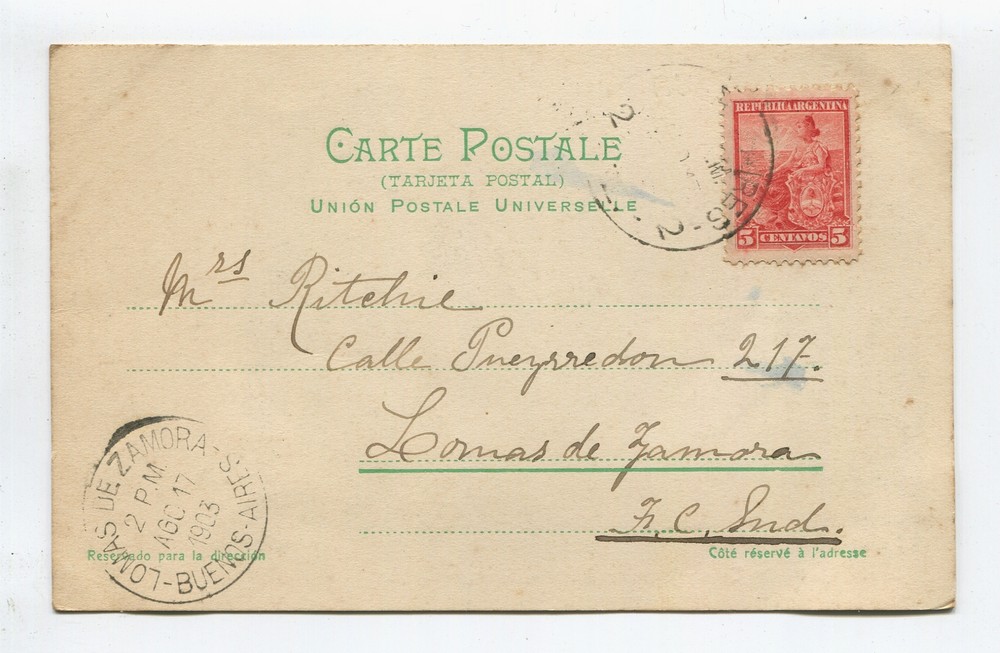 CARTE POSTALE
(TARJETA POSTAL)
UNIÓN POSTALE UNIVERSELLE
REPUBLICA ARGENTINA
5 CENTAVOS 5
AIRES - 2
2
Mrs Ritchie
Calle Pueyrredon 217.
Lomas de Zamora
F. C. Sud.
LOMAS DE ZAMORA - BUENOS-AIRES
2 P.M
AGO 17
1903
Reservado para la dirección
Côté réservé à l'adresse